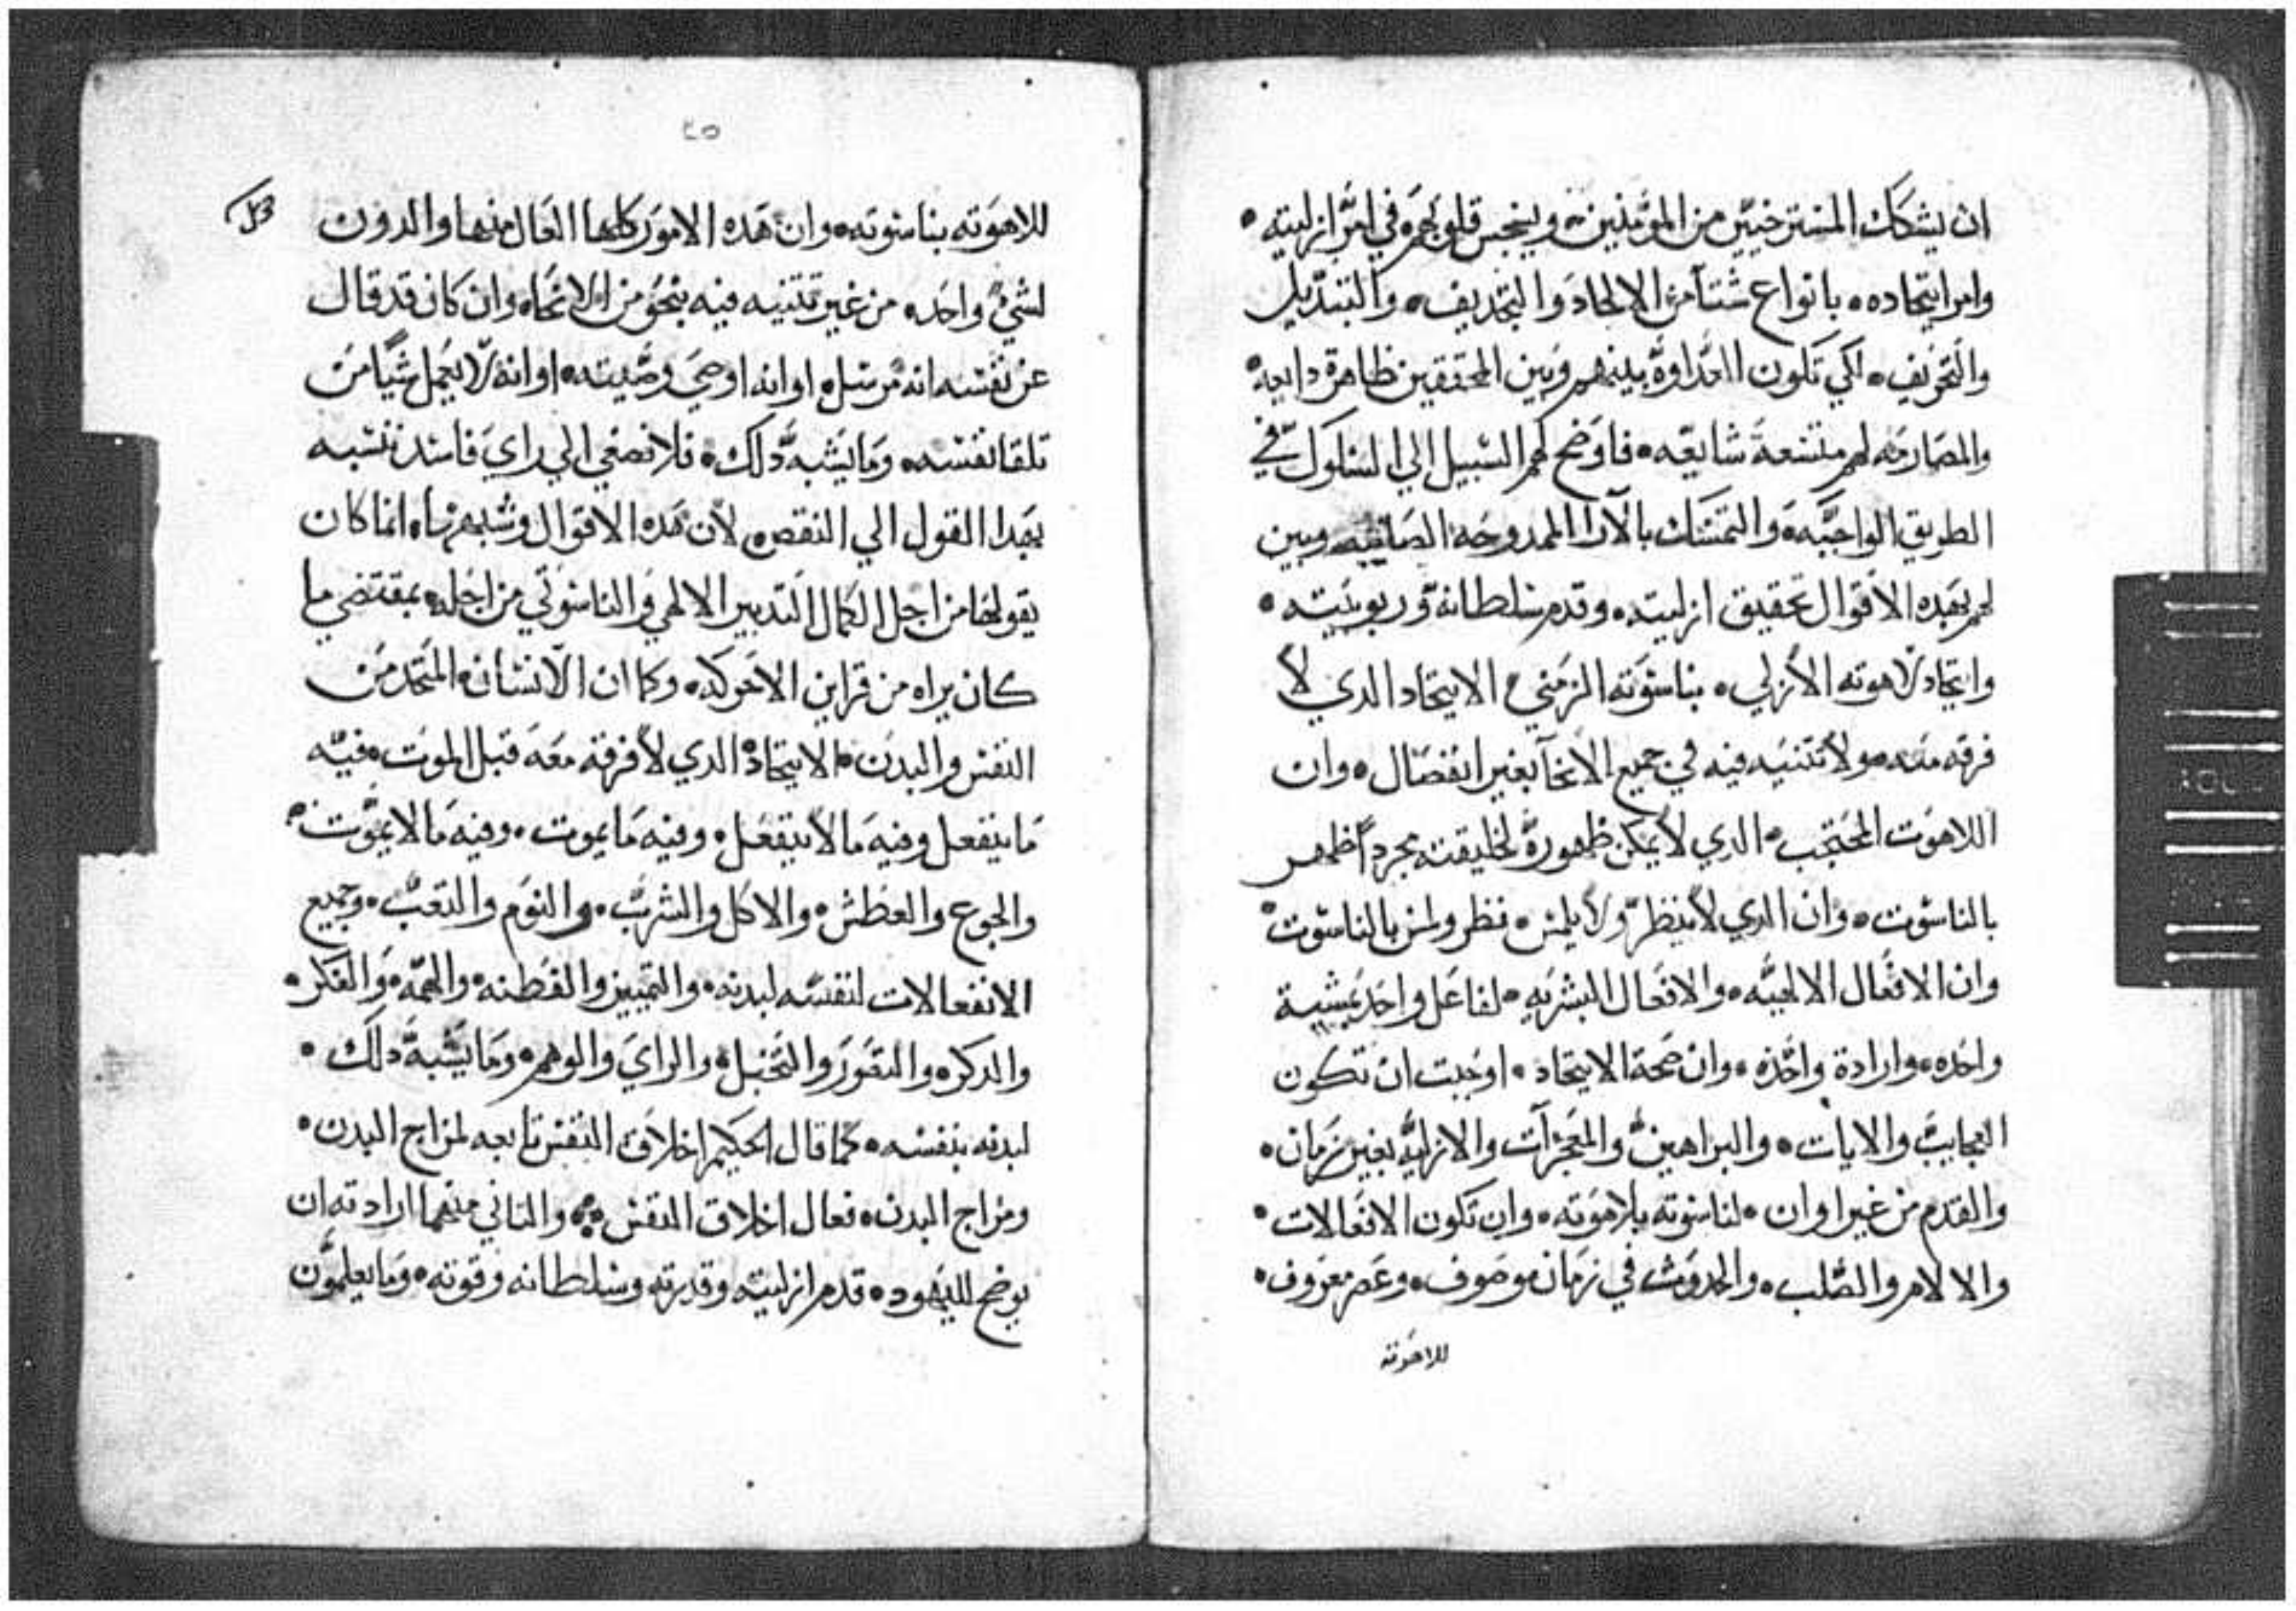 ان يشكك المسترخيين من المومنين وينجس قلوبهم في امر ازليته
وامر ايتحاده بانواع شتا من الالحاد والتجديف والتبديل
لكي تكون العداوة بينهم وبين المحققين ظاهرة دايعه
والمصارمه لهم متسعة شايعه فاوضح لهم السبيل الي السلوك في
الطريق الواجبه والتمسك بالآرا الممدوحة الصايبه وبين
لهم بهده الاقوال تحقيق ازليته وقدم سلطانه وربوبيته
وايتحاد لاهوته الازلي بناسوته الزمني الايتحاد الدي لا
فرقه معه ولا تتنيه فيه في جميع الانحآ بغير انفصال وان
اللاهوت المحتجب الدي لا يمكن ظهوره لخليقته مجرداً ظهر
بالناسوت وان الدي لا ينظر ولا يلمس نظر ولمس بالناسوت
وان الافعال الالهيه والافعال البشريه لفاعل واحد بمشية
واحده وارادة واحده وان صحة الايتحاد اوجبت ان تكون
العجايب والايات والبراهين والمعجزات والازليه بغير زمان
والقدم من غير اوان لناسوته بلاهوته وان تكون الانفعالات
والالام والصلب والحدوث في زمان موصوف وعصر معروف
للاهوته
٢٥
للاهوته بناسوته وان هده الامور كلها العال منها والدون
لشي واحد من غير تتنيه فيه بنحو من الانحاه وان كان قد قال
عن نفسه انه مرسل او انه اوصي وصيته او انه لا يعمل شيا من
تلقا نفسه وما يشبه دلك فلا تصغي الي راي فاسد تنسبه
بهدا القول الي النقص لان هده الاقوال وشبهها انما كان
يقولها من اجل الكمال التدبير الالهي والناسوتي من اجله بمقتضي ما
كان يراه من قراين الاحوال وكما ان الانسان المتحد من
النفس والبدن الايتحاد الدي لا فرقه معه قبل الموت فيه
ما ينفعل وفيه ما لا ينفعل وفيه ما يموت وفيه ما لا يموت
والجوع والعطش والاكل والشرب والنوم والتعب وجميع
الانفعالات لنفسه لبدنه والتمييز والفطنه والهمه والفكر
والدكره والتصور والتخيل والراي والوهم وما يشبه دلك
لبدنه بنفسه كما قال الحكيم اخلاق النفس تابعه لمزاج البدن
ومزاج البدن فعال اخلاق النفس والتاني منهما ارادته ان
يوضح لليهود قدم ازليته وقدرته وسلطانه وقوته وما يعلمون